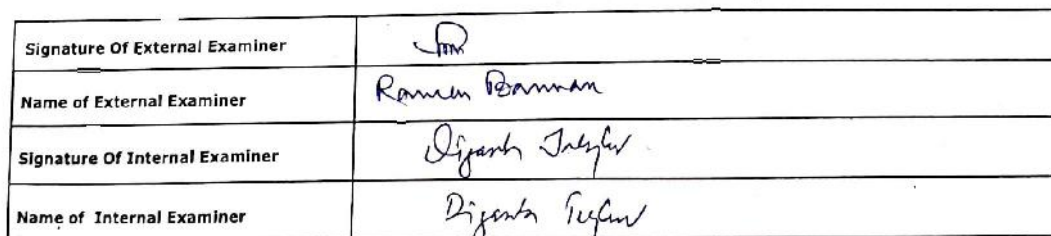 Signature Of External Examiner
Name of External Examiner Ramen Barman
Signature Of Internal Examiner Diganta
Name of Internal Examiner Diganta